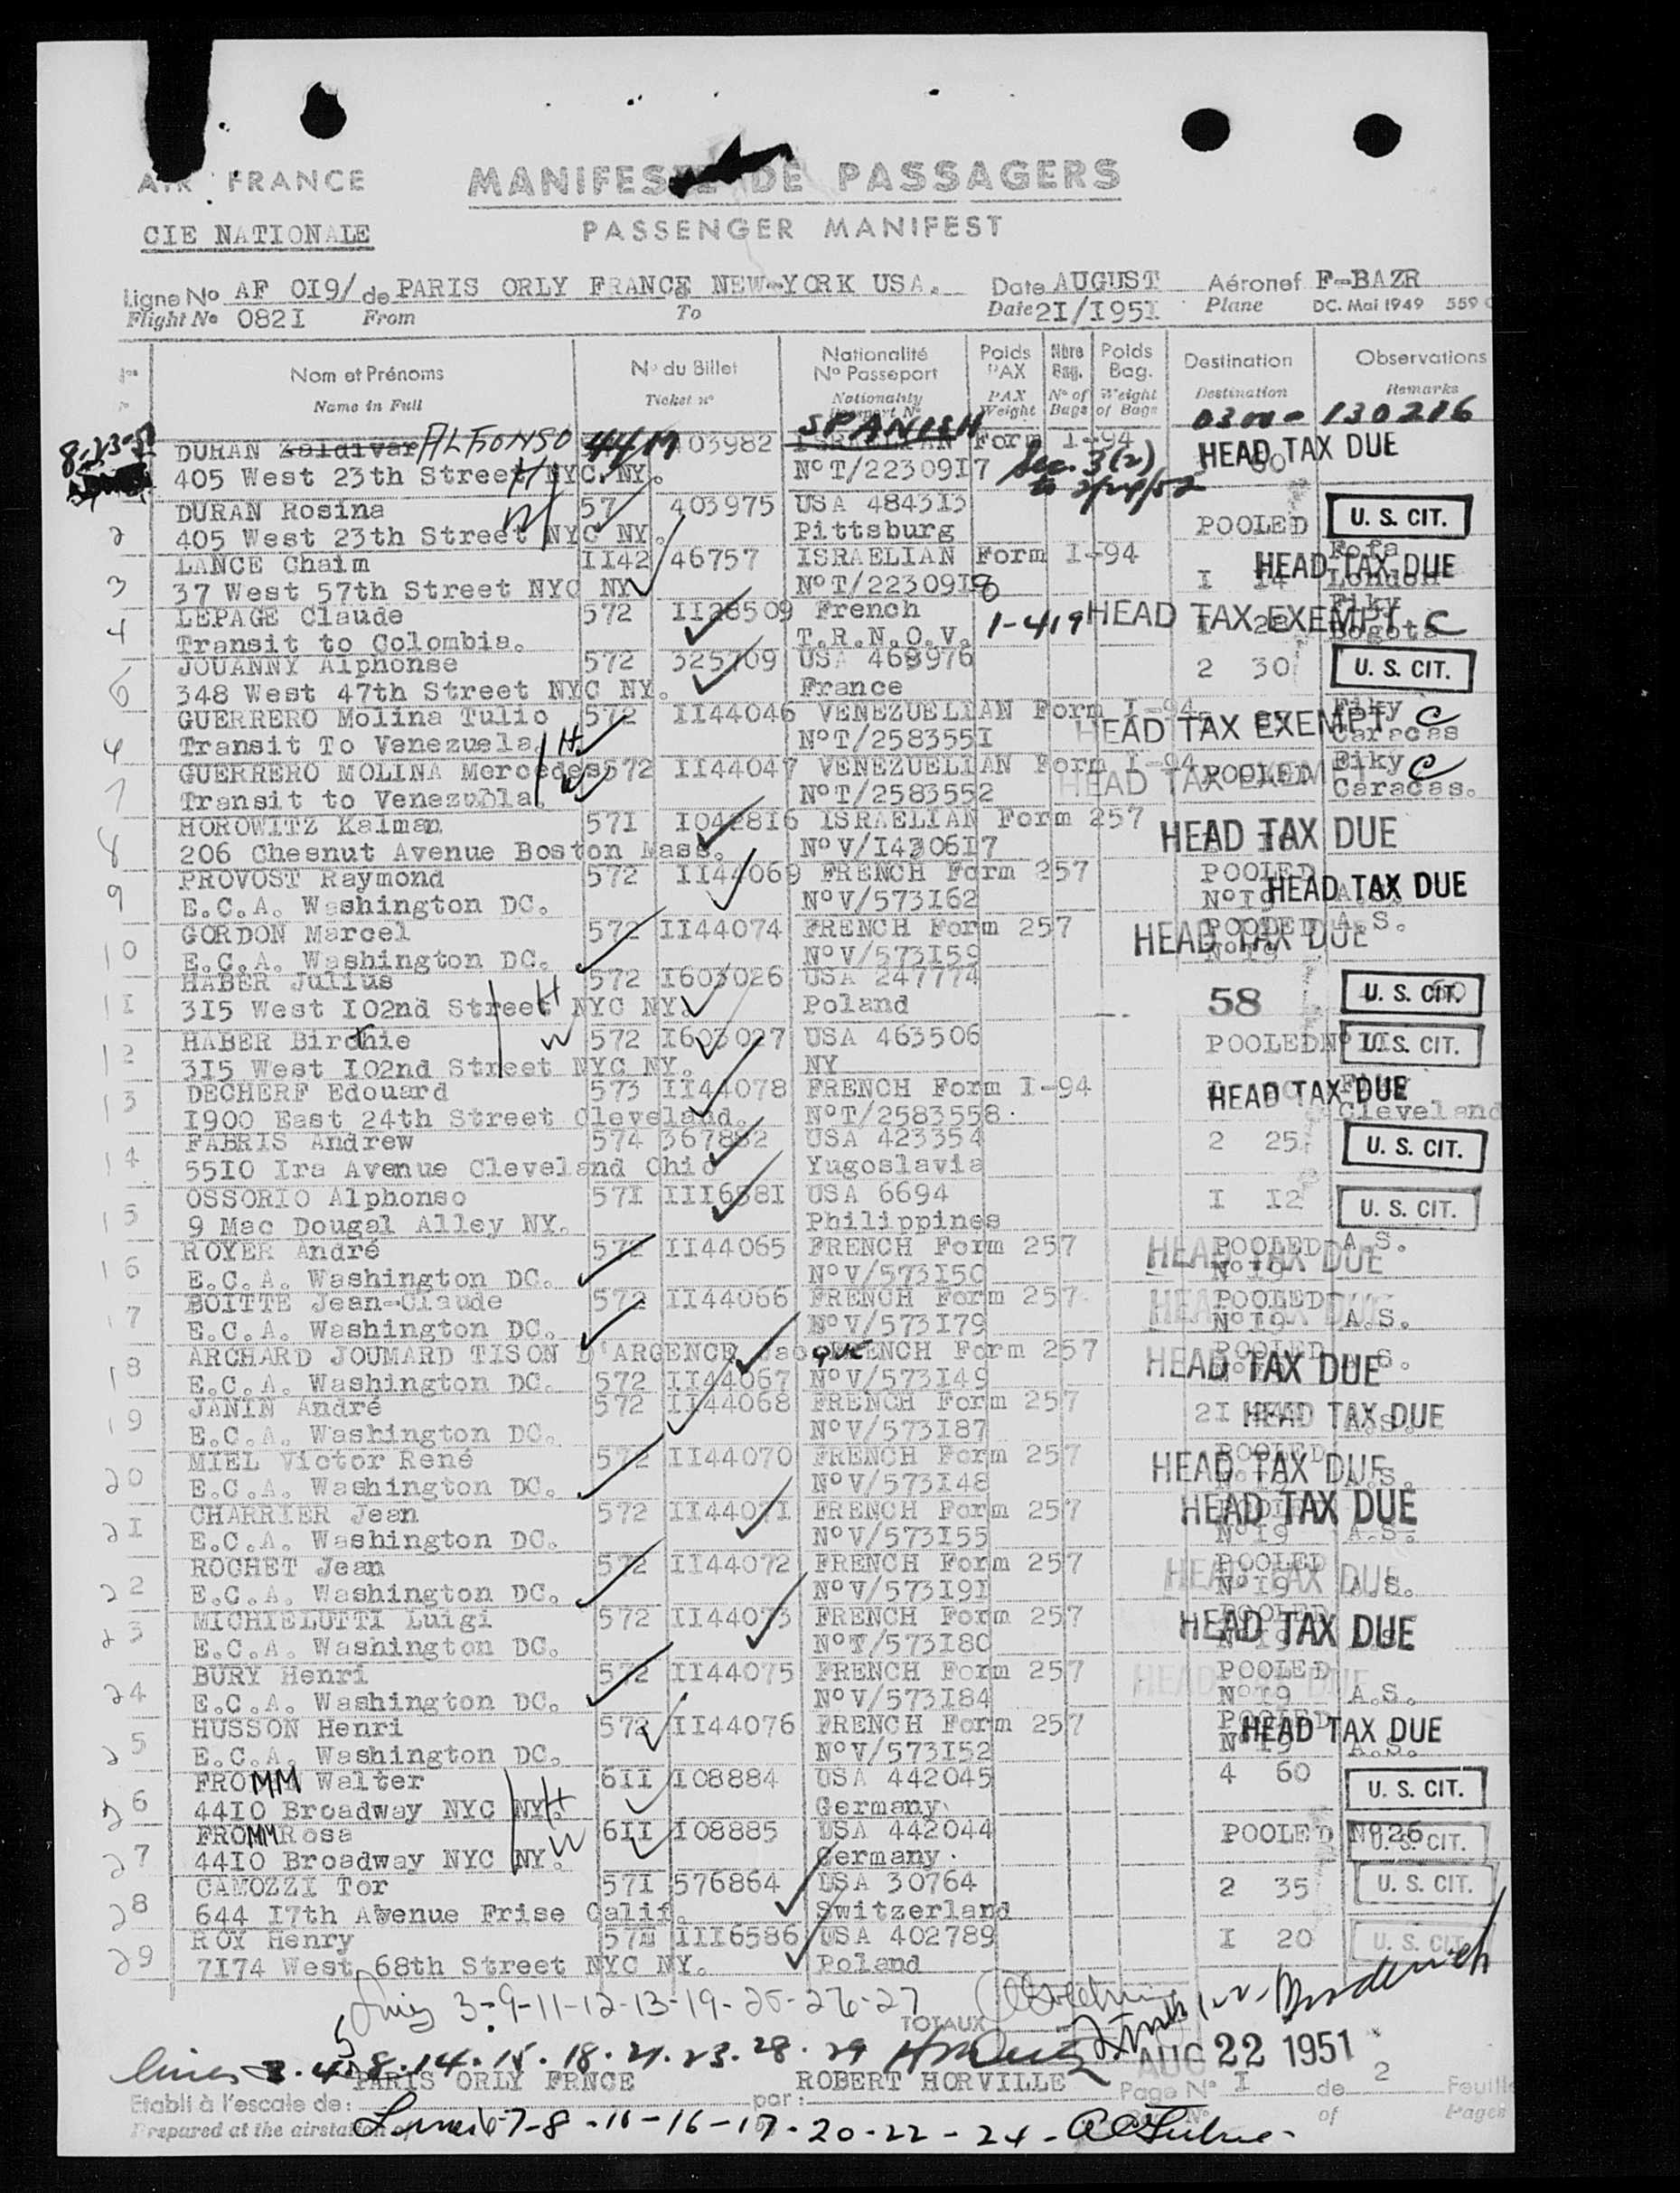 AIR FRANCE
CIE NATIONALE
MANIFESTE DE PASSAGERS
PASSENGER MANIFEST
Ligne No AF OI9/ de PARIS ORLY FRANCE à NEW-YORK USA. Date AUGUST Aéronef F-BAZR
Flight No 082I From To Date 2I/I95I Plane DC. Mai 1949 559
Nom et Prénoms No du Billet Nationalité No Passeport Poids PAX Nbre Bag. Poids Bag. Destination Observations
Name in Full Ticket no Nationality Passport No PAX Weight No of Bags Weight of Bags Destination Remarks
SPANISH 0300- 130216
8-23-51 DURAN Zaldivar ALFONSO 44M 403982 ISRAELIAN Form I-94 HEAD TAX DUE
405 West 23th Street NYC. NY. H No T/22309I7 Sec. 3(2) to 2/21/52
DURAN Rosina 57 403975 USA 4843I3 POOLED U. S. CIT.
2 405 West 23th Street NYC NY. W Pittsburg
LANCE Chaim II42 46757 ISRAELIAN Form I-94 HEAD TAX DUE
3 37 West 57th Street NYC NY No T/22309I8 I I4 London
LEPAGE Claude 572 II28509 French I-419 HEAD TAX EXEMPT C
4 Transit to Colombia. T.R.N.O.V. Bogota
JOUANNY Alphonse 572 325709 USA 468976 2 30 U. S. CIT.
5 348 West 47th Street NYC NY. France
GUERRERO Molina Tulio 572 II44046 VENEZUELIAN Form I-94 HEAD TAX EXEMPT Fiky C
6 Transit To Venezuela. H No T/258355I Caracas
GUERRERO MOLINA Mercedes 572 II44047 VENEZUELIAN Form I-94 POOLED HEAD TAX EXEM Fiky C
7 Transit to Venezubla. W No T/2583552 Caracas.
HOROWITZ Kalman 57I I0428I6 ISRAELIAN Form 257 HEAD TAX DUE
8 206 Chesnut Avenue Boston Mass. No V/I4306I7
PROVOST Raymond 572 II44069 FRENCH Form 257 POOLED HEAD TAX DUE
9 E.C.A. Washington DC. No V/573I62 No I9
GORDON Marcel 572 II44074 FRENCH Form 257 POOLED A.S. HEAD TAX DUE
10 E.C.A. Washington DC. No V/573I59 No I9
HABER Julius 572 I603026 USA 247774 58 U. S. CIT.
11 3I5 West I02nd Street NYC NY. H Poland
HABER Birdhie 572 I603027 USA 463506 POOLED No II U. S. CIT.
12 3I5 West I02nd Street NYC NY. W NY
DECHERF Edouard 573 II44078 FRENCH Form I-94 HEAD TAX DUE
13 I900 East 24th Street Cleveland. No T/2583558 Cleveland
FABRIS Andrew 574 367882 USA 423354 2 25 U. S. CIT.
14 55I0 Ira Avenue Cleveland Ohio Yugoslavia
OSSORIO Alphonso 57I III658I USA 6694 I I2 U. S. CIT.
15 9 Mac Dougal Alley NY. Philippines
ROYER André 572 II44065 FRENCH Form 257 POOLED A.S. HEAD TAX DUE
16 E.C.A. Washington DC. No V/573I50 No I9
BOITTE Jean-Claude 572 II44066 FRENCH Form 257 POOLED HEAD TAX DUE
17 E.C.A. Washington DC. No V/573I79 No I9 A.S.
ARCHARD JOUMARD TISON D'ARGENCE Jacque FRENCH Form 257 HEAD TAX DUE
18 E.C.A. Washington DC. 572 II44067 No V/573I49
JANIN André 572 II44068 FRENCH Form 257 2I HEAD TAX DUE
19 E.C.A. Washington DC. No V/573I87 A.S.
MIEL Victor René 572 II44070 FRENCH Form 257 POOLED HEAD TAX DUE
20 E.C.A. Washington DC. No V/573I48 A.S.
CHARRIER Jean 572 II4407I FRENCH Form 257 HEAD TAX DUE
21 E.C.A. Washington DC. No V/573I55 No I9 A.S.
ROCHET Jean 572 II44072 FRENCH Form 257 POOLED HEAD TAX DUE
22 E.C.A. Washington DC. No V/573I9I No I9 A.S.
MICHIELUTTI Luigi 572 II44073 FRENCH Form 257 POOLED HEAD TAX DUE
23 E.C.A. Washington DC. No V/573I80
BURY Henri 572 II44075 FRENCH Form 257 POOLED HEAD TAX DUE
24 E.C.A. Washington DC. No V/573I84 No I9 A.S.
HUSSON Henri 572 II44076 FRENCH Form 257 POOLED HEAD TAX DUE
25 E.C.A. Washington DC. No V/573I52 No I9 A.S.
FROMM Walter 6II I08884 USA 442045 4 60 U. S. CIT.
26 44I0 Broadway NYC NY. H Germany
FROMM Rosa 6II I08885 USA 442044 POOLED No 26 U. S. CIT.
27 44I0 Broadway NYC NY. W Germany
CAMOZZI Tor 57I 576864 USA 30764 2 35 U. S. CIT.
28 644 I7th Avenue Frise Calif. Switzerland
ROY Henry 57 III6586 USA 402789 I 20 U. S. CIT.
29 7I74 West 68th Street NYC NY. Poland
3-9-11-12-13-19-25-26-27
TOTAUX
lines 3.4.5.8.14.15.18.21.23.28.29 AUG 22 1951
PARIS ORLY FRNCE ROBERT HORVILLE Page No I de 2 Feuille
Etabli à l'escale de: par: of Pages
Prepared at the airstation Lines 6-7-8-10-16-17-20-22-24-